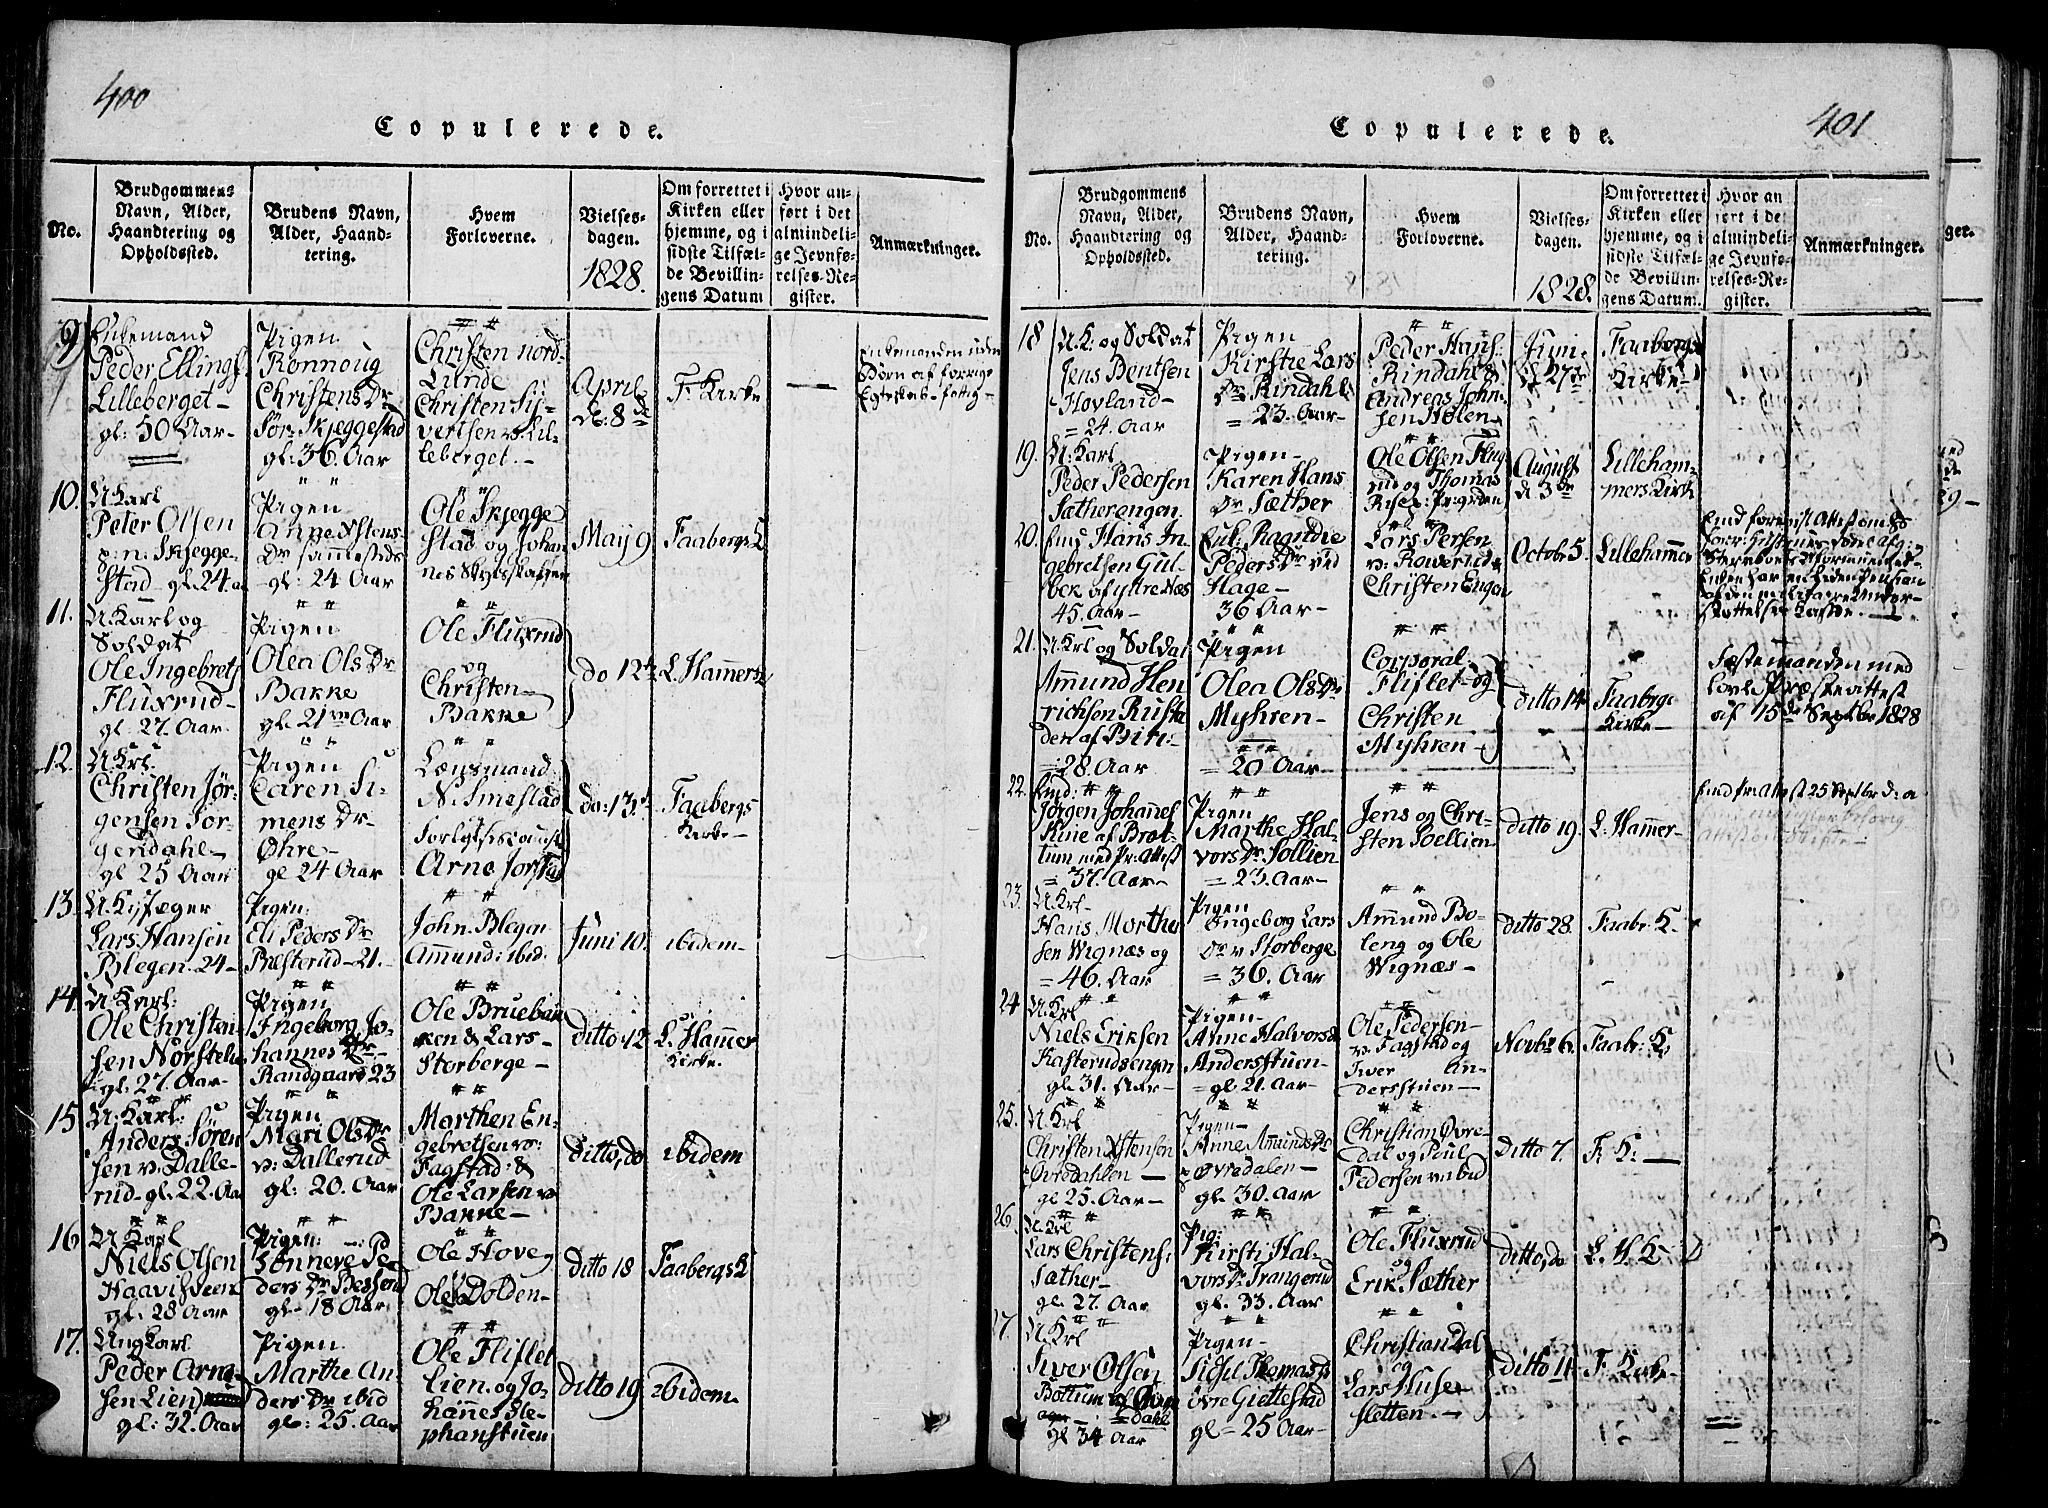 400
Copulerede.
No.
Brudgommens
Navn, Alder,
Haandtering og
Opholdssted.
Brudens Navn,
Alder, Haand-
tering.
Hvem
Forloverne.
Vielses-
dagen.
1828.
Om forrettet i
Kirken eller
hjemme, og i
sidste Tilfæl-
de Bevillin-
gens Datum
Hvor an-
ført i det
almindeli-
ge Jevnfø-
relses-Re-
gister.
Anmærkninger.
9)
Enkemand
Peder Ellings
Lilleberget-
gl: 50 Aar-
Pigen
Ronnoug
Christens Dr
Sør Skjeggestad
gl: 36. Aar
Christen Nord-
Lunde
Christen Si-
vertsen v: Lil-
leberget.-
Aprile
d: 8de
F. Kirke
Enkemanden uden
Børn af forrige
Egteskab- fattig-
10.
U Karl
Peter Olsen
p: n: Skjegge-
stad- gl. 24 aa
Pigen
Anne Østens-
Dr sammesteds
- gl: 24 Aar
Ole Skjegge
stad og Johan
nes Skydsskaffer
May 9
Faabergs K
11.
U Karl og
Soldat
Ole Ingebrets
Fluxrud-
gl. 27. Aar
Pigen
Olea Ols Dr
Bakke
gl. 21 Aar
Ole Fluxrud
og
Christen-
Bakke
do 12te
L. Hammers K
12.
U Krl.
Christen Jør-
gensen Jør-
gendahl-
gl 25 Aar
Pigen
Caren Si-
mens Dr
Øhre-
gl 24 Aar
Lænsmand
N. Smestad
Forligelsescomiss
Arne Jorstad
do: 13de
Faabergs
Kirke-
13.
U. K. Jæger
Lars Hansen
Blegen. 24-
Pigen:
Eli Peders Dr
Bæsterud-21.-
John. Blegen
Amund: ibid.
Juni 10.
ibidem-
14.
U Karl:
Ole Christen-
sen Nørstelie
gl. 27. Aar-
Pigen
Ingeborg Jo-
hannes Dr-
Randgaard 23
Ole Bruebak
ken & Lars-
Storberge-
Ditto: 12
L. Hammer
Kirke.
15
U. Karl:
Anders Sören
sen v: Dalle-
rud- gl. 22. Aar
Pigen
Mari Ols Dr
v: Dallerud
gl: 20. Aar
Marthen En-
gebretsen v:
Fagstad: &
Ole Larsen v
Bakke-
Ditto, do
ibidem
16
U Karl
Niels Olsen
Haavisveen
gl. 28 Aar
Pigen:
Sønneve Pe
ders Dr
gl- 18 Aar
Ole Hove
Ole Dolden-
Ditto 18
Faabergs K
17.
Ung Karl.
Peder Arne
sen Lien
gl: 32. Aar
Pigen
Marthe An-
ders Dr ibid
gl: 25. Aar
Ole Fliflet
Lien. og Jo-
hannes Ste-
phanstuen
Ditto 19
ibidem.
401
Copulerede.
No.
Brudgommens
Navn, Alder,
Haandtering og
Opholdssted.
Brudens Navn,
Alder, Haand-
tering.
Hvem
Forloverne.
Vielses-
dagen.
1828.
Om forrettet i
Kirken eller
hjemme, og i
sidste Tilfæl-
de Bevillin-
gens Datum.
Hvor an
ført i det
almindeli-
ge Jevnfø-
relses-Re-
gister.
Anmærkninger.
18
U K: og Soldat
Jens Bentsen
Hovland-
= 24. Aar
Pigen
Kirstie Lars
Dr Rindahl
= 23. Aar
Peder Hans
Rindahl &
Andreas John-
sen Holen-
Juni
d 27de
Faabergs
Kirke
19.
U. Karl
Peder Pedersen
Sætherengen.
Pigen-
Karen Hans
Dr Sæther
Ole Olsen Flug
rud og Thomas
August
d 3de
Lilleham-
mers Kirk
20.
Hans In
gebretsen Gul-
bek af yttre Næs
45. Aar-
Enk: Ragndie
Peders Dr ved
Hage-
36 Aar-
Lars Persen
v: Roverud &
Christen Engen
Octobr 5.
Lillehammer
21.
U. Krl og Soldat
Amund Hen
richsen Ruste
den af Biri:-
= 28. Aar
Pigen
Olea Ols Dr
Myhren-
= 20 Aar-
Corporal
Fliflet og
Christen
Myhren-
Ditto 14
Faabergs
Kirke-
Fæstemanden med
Lovl. Præsteattest
af 15de Septbr 1828
22.
Jørgen Johannes
af Brøt-
tum med Pr: Attest
= 37. Aar-
Pigen
Marthe Hal-
vors Dr Sollien
= 23. Aar-
Jens og Chri-
sten Soellien
Ditto 19.
L. Hammer-
23.
U. Krl-
Hans. Morthe
sen Wignæs og
= 46. Aar
Pigen
Ingeborg Lars
Dr v Storberge
= 36. Aar
Amund Bo-
leng og Ole
Wignæs-
Ditto 28.
Faabr: K.
24
U. Krl
Niels Eriksen
Kasterudsengen
gl. 31. Aar-
Pigen-
Anne Halvorsd
Andersstuen-
- gl. 21. Aar
Ole Pedersen-
v: Fagstad og
Iver An-
dersstuen-
Novbr 6.
Faabr: K
25.
U. Krl
Christen Østensen
Øvredahlen-
gl 25. Aar-
Pigen-
Anne Amunds Dr
Øvredalen-
gl. 30. Aar
Christian Øvre-
dal og Poul
Pedersen v: ibid
Ditto 7.
F. K:-
26.
U. Krl
Lars Christens:
Sæther-
gl. 27. Aar
Pig:
Kirsti Hal-
vors Dr Trangerud
gl. 33. Aar
Ole Fluxrud
og
Erik Sæther
Ditto, do
L. H. K
27.
U. Krl
Iver Olsen
gl 34 Aar
Pigen-
Sidsel Thomasd
øvre Giettestad
gl- 25 Aar-
Christian Dal
og
Lars Huse-
sletten.-
Ditto 11
F. Kirke-